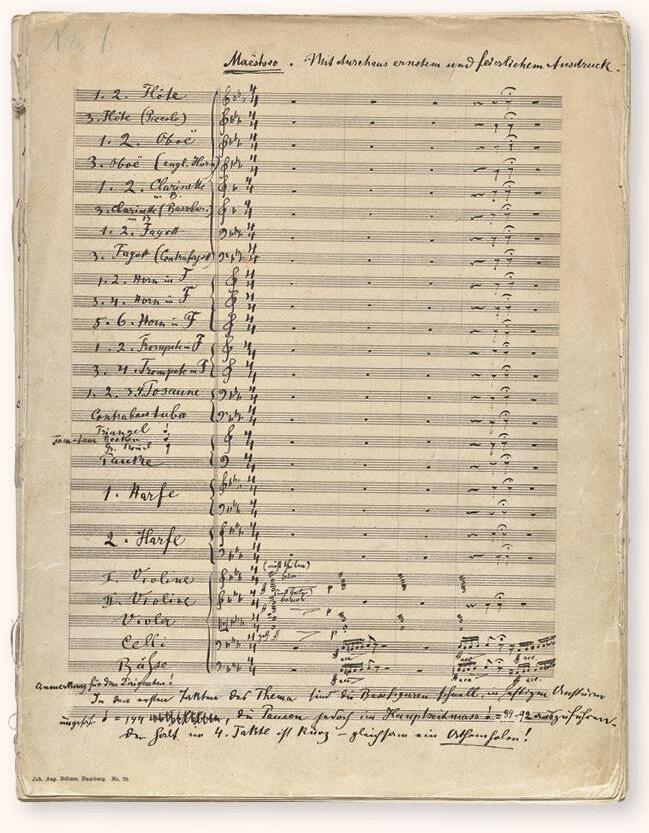 Nro 1
Maëstoso. Mit durchaus ernstem und feierlichem Ausdruck.
1. 2. Flöte
3. Flöte (Piccolo)
1. 2. Oboë
3. Oboë (engl. Horn)
1. 2. Clarinette
in B.
3. Clarinette (Bassclar.)
in B
1. 2. Fagott
3. Fagott (Contrafagott)
1. 2. Horn in F
3. 4. Horn in F
5. 6. Horn in F
1. 2. Trompete in F
3. 4. Trompete in F
1. 2. 3. 4. Posaune
Contrabasstuba
Triangel
Tam-tam Becken
Gr. Trommel
Pauke
1. Harfe
2. Harfe
(nicht theilen)
I. Violine
II. Violine
Viola
Celli
Bässe
Anmerkung für den Dirigenten!
In den ersten Takten des Thema sind die Bassfiguren schnell, in heftigem Ansturm
ungefähr = 144, die Pausen jedoch im Hauptzeitmass = 84-92 auszuführen.
Der Halt im 4. Takte ist kurz – gleichsam ein Athemholen!
Joh. Aug. Böhme, Hamburg. No. 20.